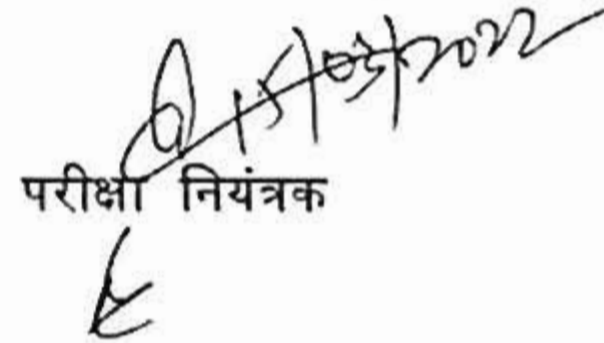 15/03/2022
परीक्षा नियंत्रक